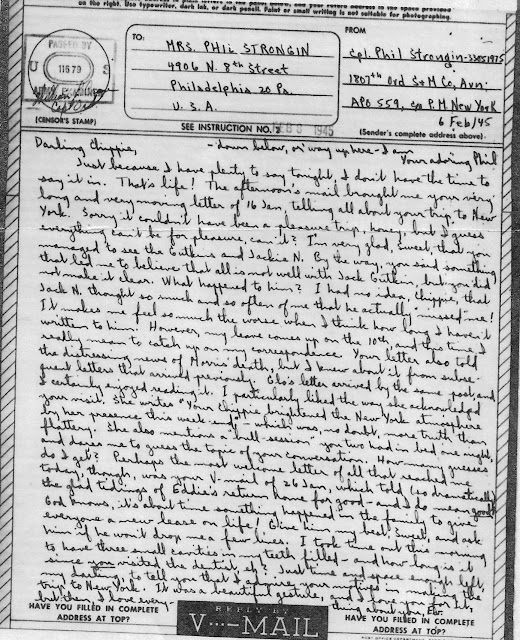 on the right. Use typewriter, dark ink, or dark pencil. Faint or small writing is not suitable for photographing.
PASSED BY
U S
11679
ARMY EXAMINER
(CENSOR'S STAMP)
TO:
MRS. PHIL STRONGIN
4906 N. 8th Street
Philadelphia 20 Pa.
U.S.A.
FROM
Cpl. Phil Strongin-33051975
1807th Ord S+M Co, Avn.
APO 559, c/o P.M New York
6 Feb/45
(Sender's complete address above)
SEE INSTRUCTION NO. 2
FEB 6 1945
Darling Chippie, - down below, or way up here - I am
Your adoring Phil
Just because I have plenty to say tonight, I don't have the time to
say it in. That's life! The afternoon's mail brought me your very
long and very moving letter of 16 Jan, telling all about your trip to New
York. Sorry it couldn't have been a pleasure trip, honey, but I guess
everything can't be for pleasure, can it? I'm very glad, sweet, that you
managed to see the Gitkins and Jackie N. By the way, you said something
that led me to believe that all is not well with Jack Gitkin, but you did
not make it clear. What happened to him? I had no idea, Chippie, that
Jack N. thought so much and so often of me that he actually "missed" me!
It makes me feel so much the worse when I think how long I haven't
written to him! However, my leave comes up on the 10th, and this time I
really mean to catch up on my correspondence. Your letter also told
the distressing news of Morris' death, but I knew about it from subse-
quent letters that arrived previously. Glo's letter arrived by the same post, and
I certainly enjoyed reading it. I particularly liked the way she acknowledged
your visit. She writes "Your Chippie brightened the New York atmosphere
by her presence this week-end" - which was, no doubt, more truth than
flattery. She also mentions a "bull-session" you two had in bed one night,
and dares me to guess the topic of your conversation. How many guesses
do I get? Perhaps the most welcome letter of all that reached me
today, though, was your V-mail of 26 Jan, which told (so dramatically)
the glad tidings of Eddie's return home for good - and I do mean good!
God knows, it's about time something happened in the family to give
everyone a new lease on life! Give him my best, Sweet, and ask
him if he won't drop me a few lines. I took time out this morning
to have three small cavities in my teeth filled - and how long is it
since you visited the dentist, eh? Just time and space enough left,
my darling, to tell you that I admire your in making the
trip to New York. It was a beautiful gesture, and I love you for it,
but then, I love every thing about you, Ev.
HAVE YOU FILLED IN COMPLETE
ADDRESS AT TOP?
REPLY BY
V···-MAIL
HAVE YOU FILLED IN COMPLETE
ADDRESS AT TOP?